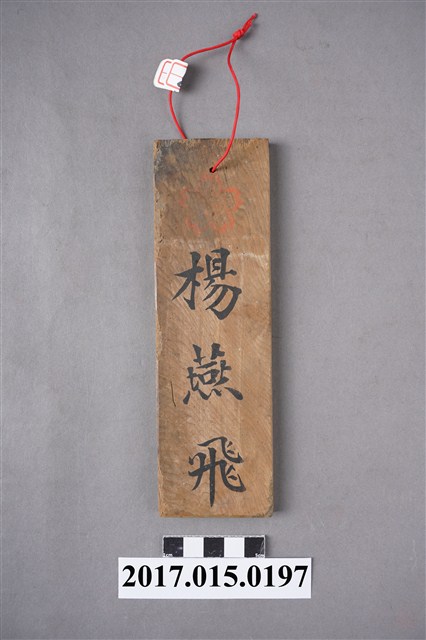 楊燕飛
2017.015.0197